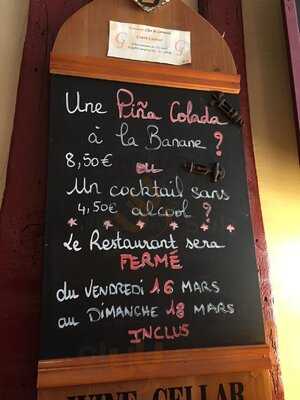 Une Piña Colada
à la Banane ?
8,50€ ou
Un cocktail sans
4,50€ alcool ?
Le Restaurant sera
FERMÉ
du VENDREDI 16 MARS
au DIMANCHE 18 MARS
INCLUS
WINE CELLAR